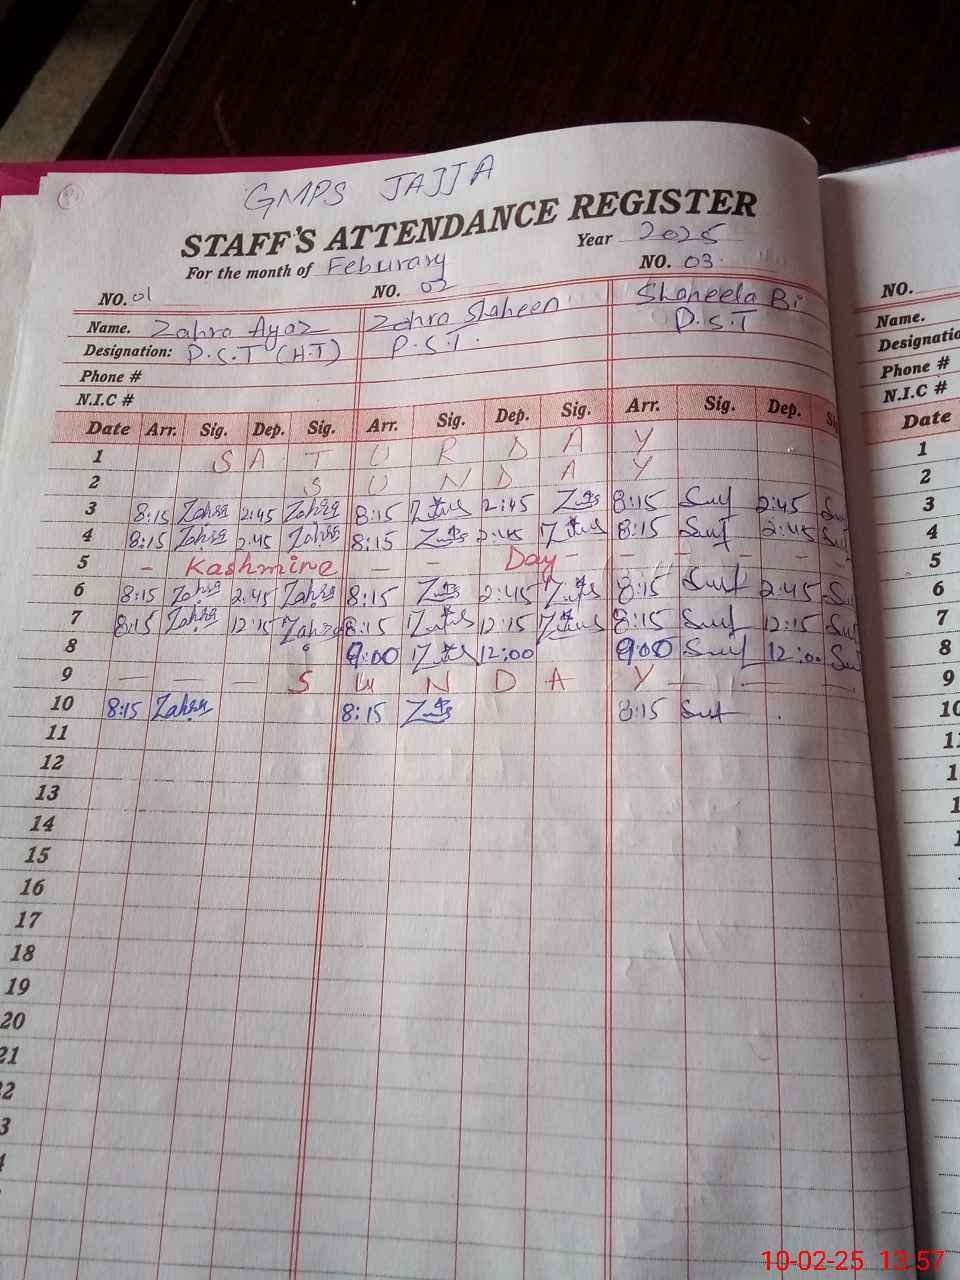 GMPS JAJJA
STAFF'S ATTENDANCE REGISTER
For the month of Feburary Year 2025
NO. 01 NO. 02 NO. 03
Name. Zahra Ayaz Zahra Shaheen Shaheela Bi
Designation: P.S.T (H.T) P.S.T. P.S.T
Phone #
N.I.C #
Date Arr. Sig. Dep. Sig. Arr. Sig. Dep. Sig. Arr. Sig. Dep. Sig
1 S A T U R D A Y
2 S U N D A Y
3 8:15 Zahra 2:45 Zahra 8:15 2:45 8:15 2:45
4 8:15 Zahra 2:45 Zahra 8:15 2:45 8:15 2:45
5 - Kashmire - - Day - - - - -
6 8:15 Zahra 2:45 Zahra 8:15 2:45 8:15 2:45
7 8:15 Zahra 12:15 Zahra 8:15 12:15 8:15 12:15
8 9:00 12:00 9:00 12:00
9 - - - S U N D A Y - - -
10 8:15 Zahra 8:15 8:15
11
12
13
14
15
16
17
18
19
20
21
2
3
NO.
Name.
Designatio
Phone #
N.I.C #
Date
1
2
3
4
5
6
7
8
9
10
11
1
1
1
10-02-25 13:57